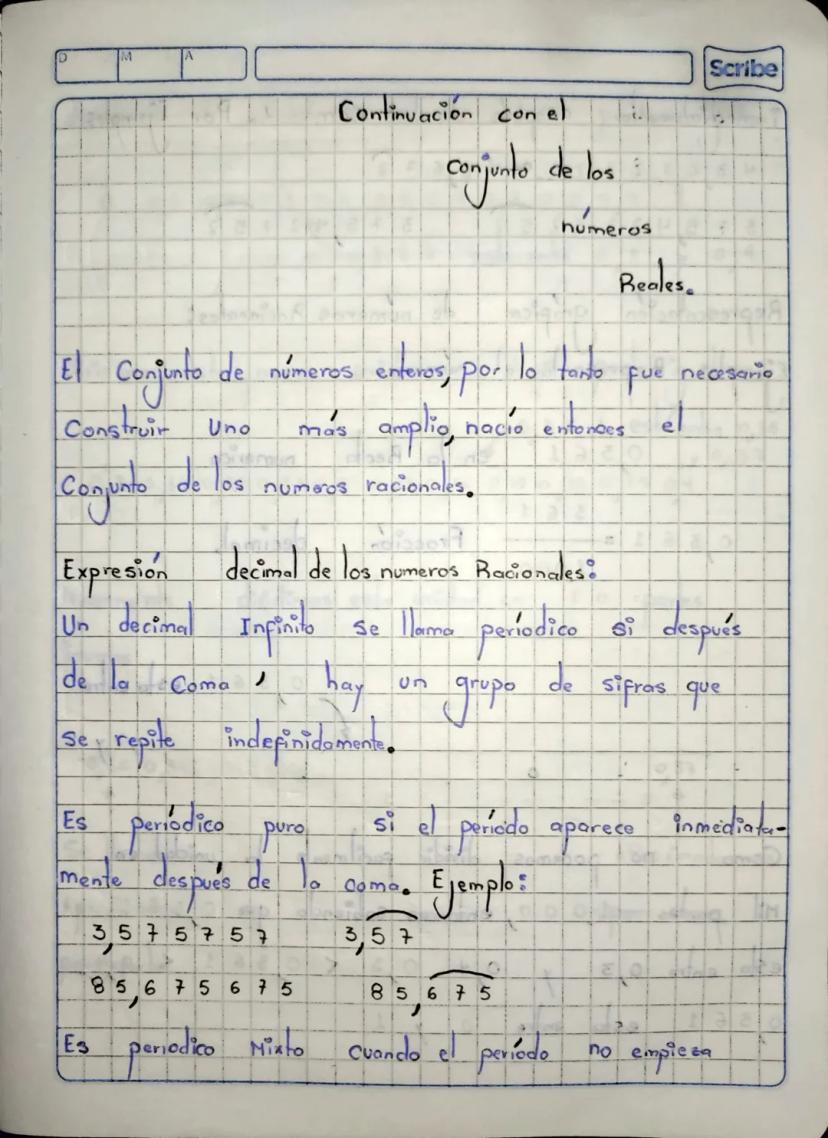 D M A
Scribe
Continuación con el
conjunto de los
números
Reales.
El Conjunto de números enteros, por lo tanto fue necesario
Construir Uno más amplio, nacío entonces el
Conjunto de los numeros racionales.
Expresión decimal de los numeros Racionales:
Un decimal Infinito se llama períodico si después
de la Coma , hay un grupo de sifras que
se repite indefinidamente.
Es períodico puro si el período aparece inmediata-
mente después de la coma. Ejemplo:
3,575757 3,57
85,675675 85,675
Es periodico Mixto cuando el período no empieza